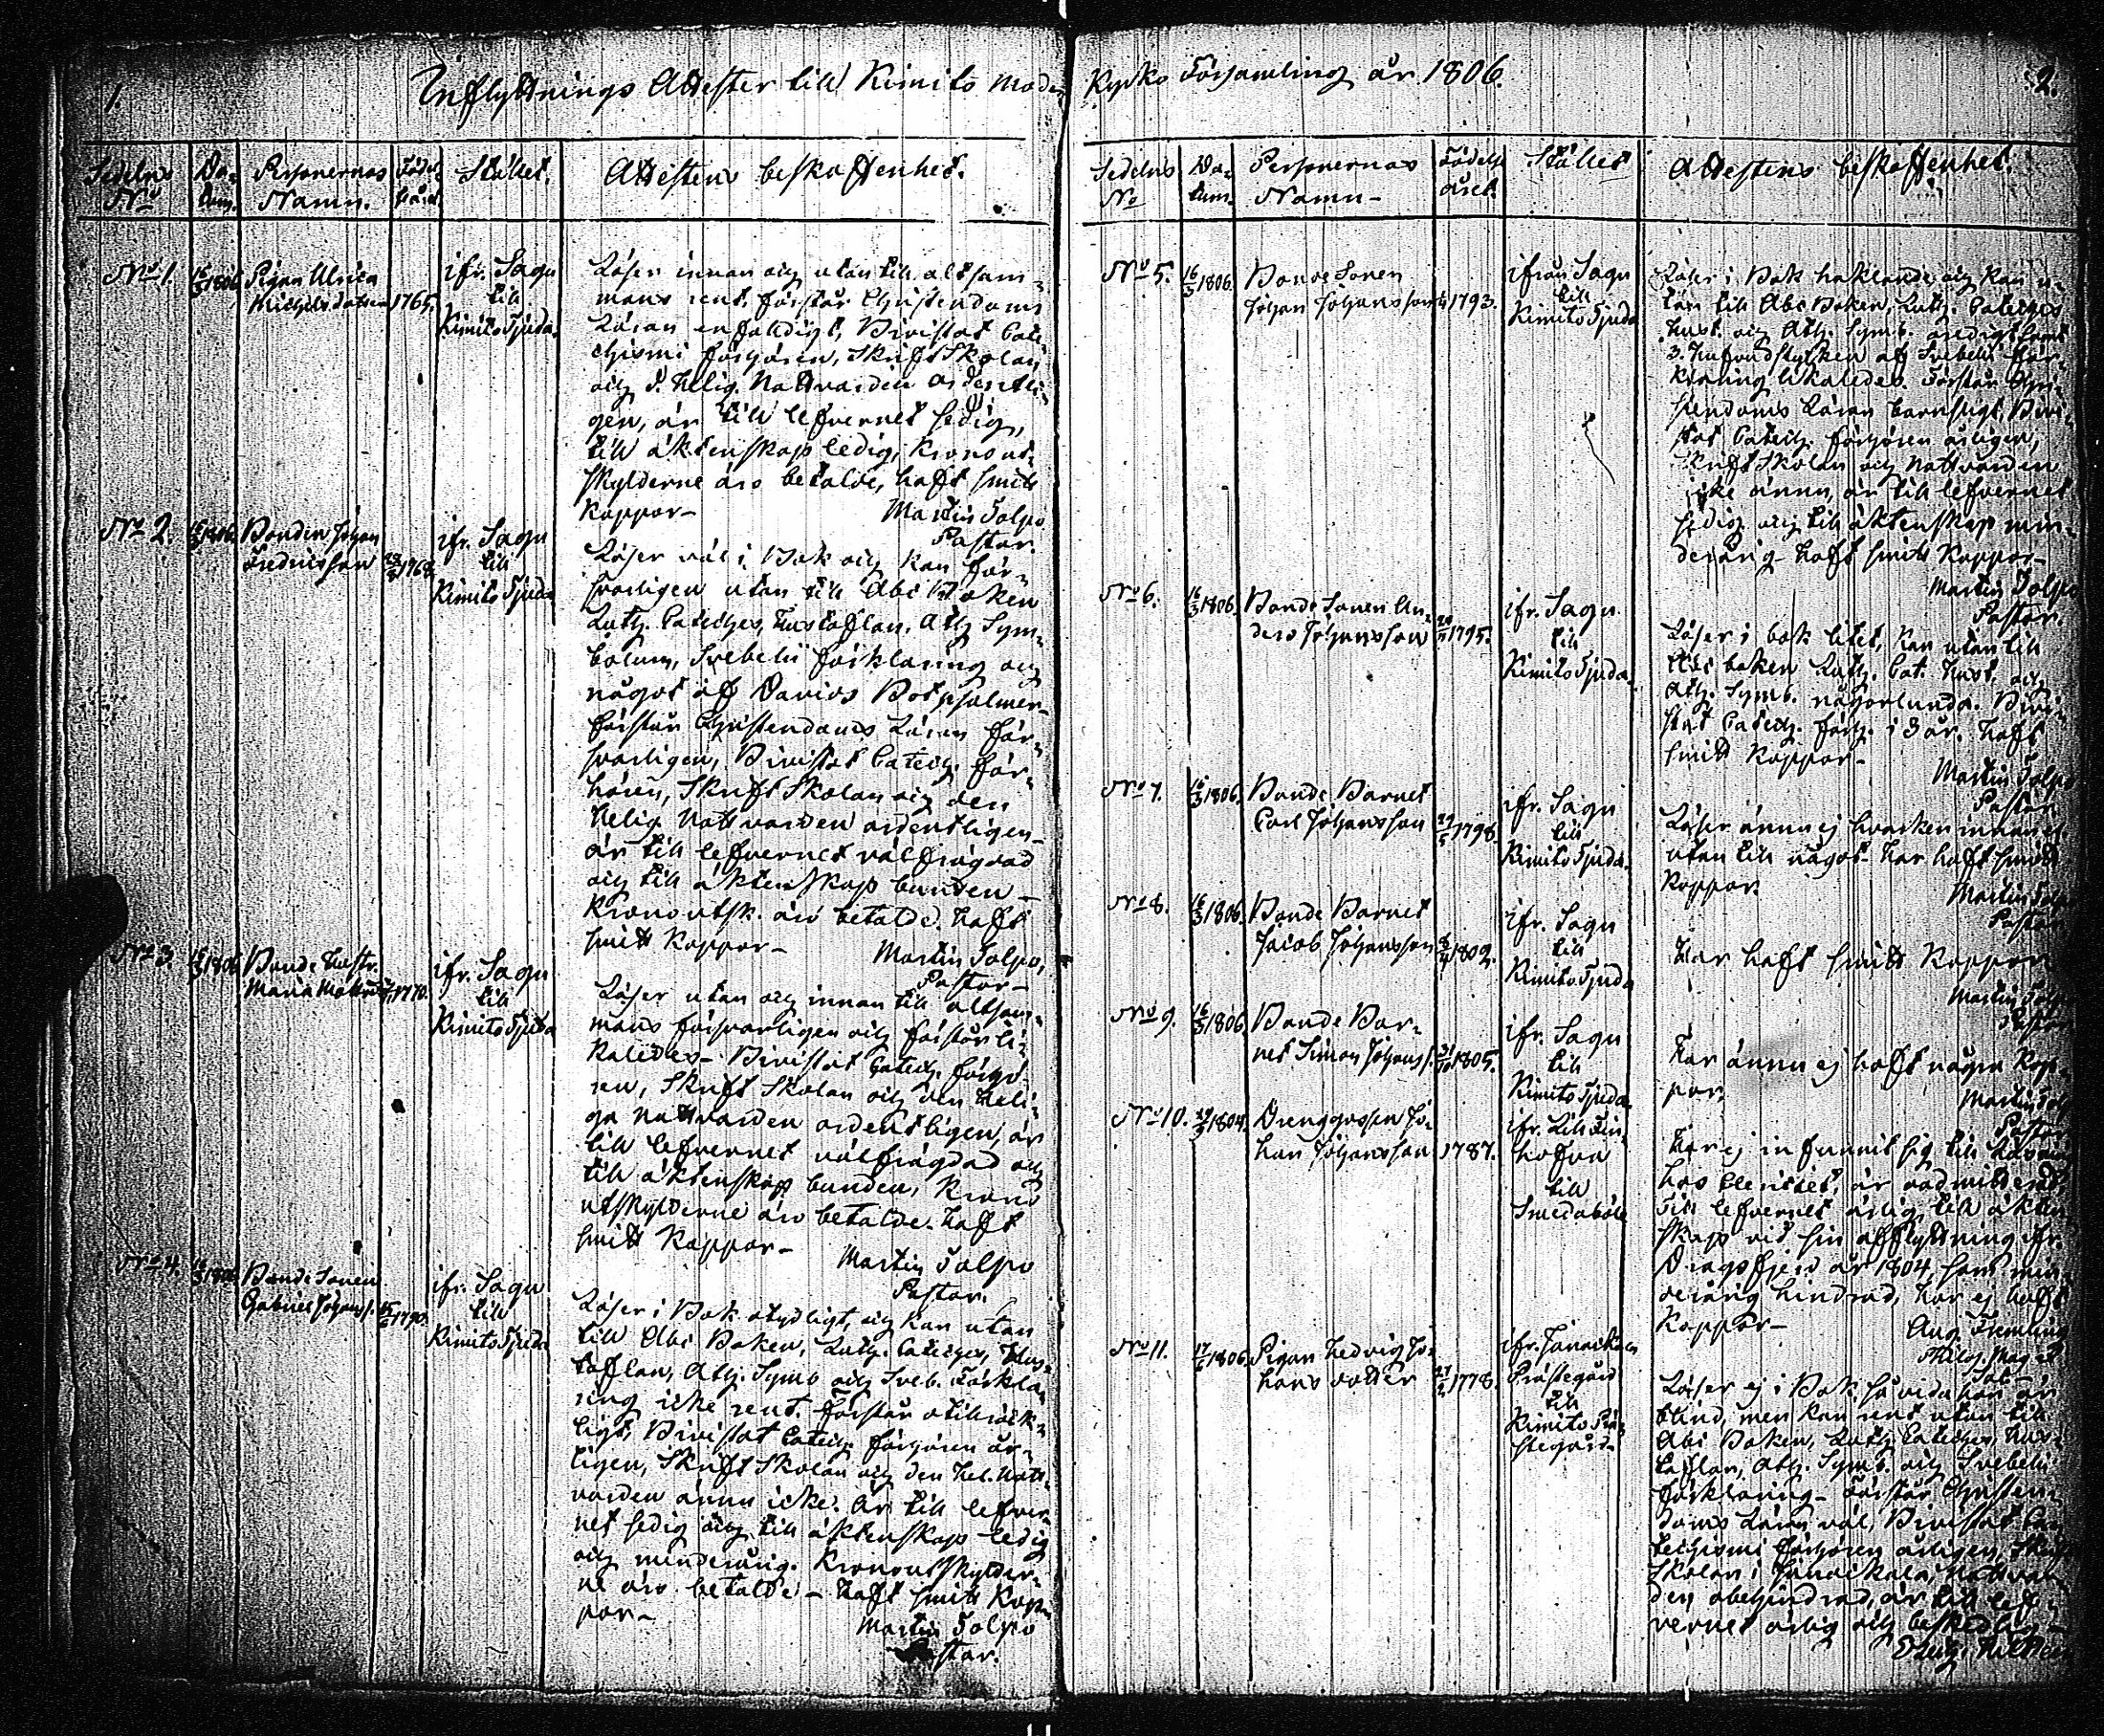 1.
Inflyttnings Attester till Kimito Moder
Sedelns No
Da-tum.
Personernas Namn.
Födelse året
Stället.
Attestens beskaffenhet.
No 1.
16/3 1806
Pigan Ulrica
Michels dotter
1765.
ifr. Sagu
till
Kimito Tjuda.
Läser innan och utan till alt sam-
mans rent. förstår Christendoms
Läran enfaldigt, Bivistat Cate-
chismi förhören, Skrift Skolan
och d. Helig. Nattvarden ordentli-
gen, är till lefvernet sedig,
till äktenskap ledig, Kronout-
skylderne äro betalde, haft smitt
Koppor-
Martin Tolpo
Pastor.
No 2.
16/3 1806.
Bonden Johan
Fredricsson
1768
ifr. Sagu
till
Kimito Tjuda
Läser väl i Bok och kan för-
svarligen utan till Abc Boken
Luth. Cateches, Hustaflan, Ath. Sym-
bolum, Svebelii förklaring och
något af Davids Botpsalmer-
förstår Christendoms Läran för-
svarligen, Bivistat Catech. för-
hören, Skrift Skolan och den
Helig. Nattvarden ordentligen-
är till lefvernet välfrägdad
och till äktenskap bunden-
Kronoutsk. äro betalde. haft
smitt Koppor-
Martin Tolpo,
Pastor-
No 3.
16/3 1806
Bonde Hustr.
Maria
1770.
ifr. Sagu
till
Kimito Tjuda
Läser utan och innan till altsam-
mans försvarligen och förstår li-
kaledes- Bivistat Catech. förhö-
ren, Skrift Skolan och den Heli-
ga Nattvarden ordentligen, är
till lefvernet välfrägdad och
till äktenskap bunden, Krono
utskylderne äro betalde. haft
smitt Koppor-
Martin Tolpo
Pastor.
No 4.
16/3 1806
Bonde Sonen
Gabriel Johanss.
1790.
ifr. Sagu
till
Kimito Tjuda
Läser i Bok otydligt, och kan utan
till Abc Boken, Luth. Cateches, Hus-
taflan, Ath. Symb. och Sveb. Förkla-
ring icke rent. förstår otillräck-
ligt, Bivistat Catech. förhören år-
ligen, Skrift Skolan och den Hel. Natt-
varden ännu icke. Är till lefver-
net sedig och till äktenskap ledig
och minderårig. Kronoutskylder-
ne äro betalde- haft smitt Kop-
por-
Martin Tolpo
Pastor.
Kyrko Församling år 1806.
2.
Sedelns No
Da-tum.
Personernas Namn-
Födelse året.
Stället
Attestens beskaffenhet.
No 5.
16/3 1806.
Bonde Sonen
Johan Johansson
1793.
ifrån Sagu
till
Kimito Tjuda
Läser i Bok hacklande och kan u-
tan till Abc Boken, Luth. Cateches
Hust. och Ath. Symb. oredigt samt
3. hufvudstycken af Svebelii För-
klaring likaledes. Förstår Chri-
stendoms Läran barnsligt, Bivi-
stat Catech. förhören årligen,
Skrift Skolan och Nattvarden
icke ännu, är till lefvernet
sedig och till äktenskap min-
derårig- haft smitt Koppor-
Martin Tolpo
Pastor.
No 6.
16/3 1806.
Bonde Sonen An-
ders Johansson
1795.
ifr. Sagu
till
Kimito Tjuda.
Läser i bok litet, kan utan till
Abc boken Luth. Cat. Hust. och
Ath. Symb. någorlunda. Bivi-
stat Catech. förh. i 3 år. haft
smitt Koppor-
Martin Tolpo
Pastor
No 7.
16/3 1806.
Bonde Barnet
Carl Johansson
1798.
ifr. Sagu
till
Kimito Tjuda.
Läser ännu ej hvarken innan el.
utan till något- har haft smitt
Koppor.
Martin Tolpo
Pastor
No 8.
16/3 1806.
Bonde Barnet
Jacob Johansson
1802.
ifr. Sagu
till
Kimito Tjuda
Har haft smitt Koppor
Martin Tolpo
Pastor
No 9.
16/3 1806
Bonde Bar-
net Simon Johanss.
1805.
ifr. Sagu
till
Kimito Tjuda.
Har ännu ej haft några Kop-
por.
Martin Tolpo
Pastor
No 10.
1804.
Drenggossen Jo-
han Johansson
1787.
hofva
till
Smedaböle
har ej infunnit sig till
hos Clericiet, är
Till lefvernet ärlig, till äkten-
skap vid sin afflyttning ifr.
Dragsfjerd år 1804, som min-
derårig hindrad, har ej haft
Koppor-
Aug.
Philos. Mag.
No 11.
1806.
Pigan Hedvig Jo-
hans dotter
1778.
Prästegård
till
Kimito Prä-
stegård-
Läser ej i Bok så vida hon är
blind, men kan rent utan till
Abc Boken, Luth. Cateches, Hus-
taflan, Ath. Symb. och Svebelii
förklaring- Förstår Christen-
doms Läran väl, Bivistat Ca-
techismi förhören årligen, Skrift
Skolan i Nattvar-
den obehindrad, är till lef-
vernet ärlig och beskedlig-